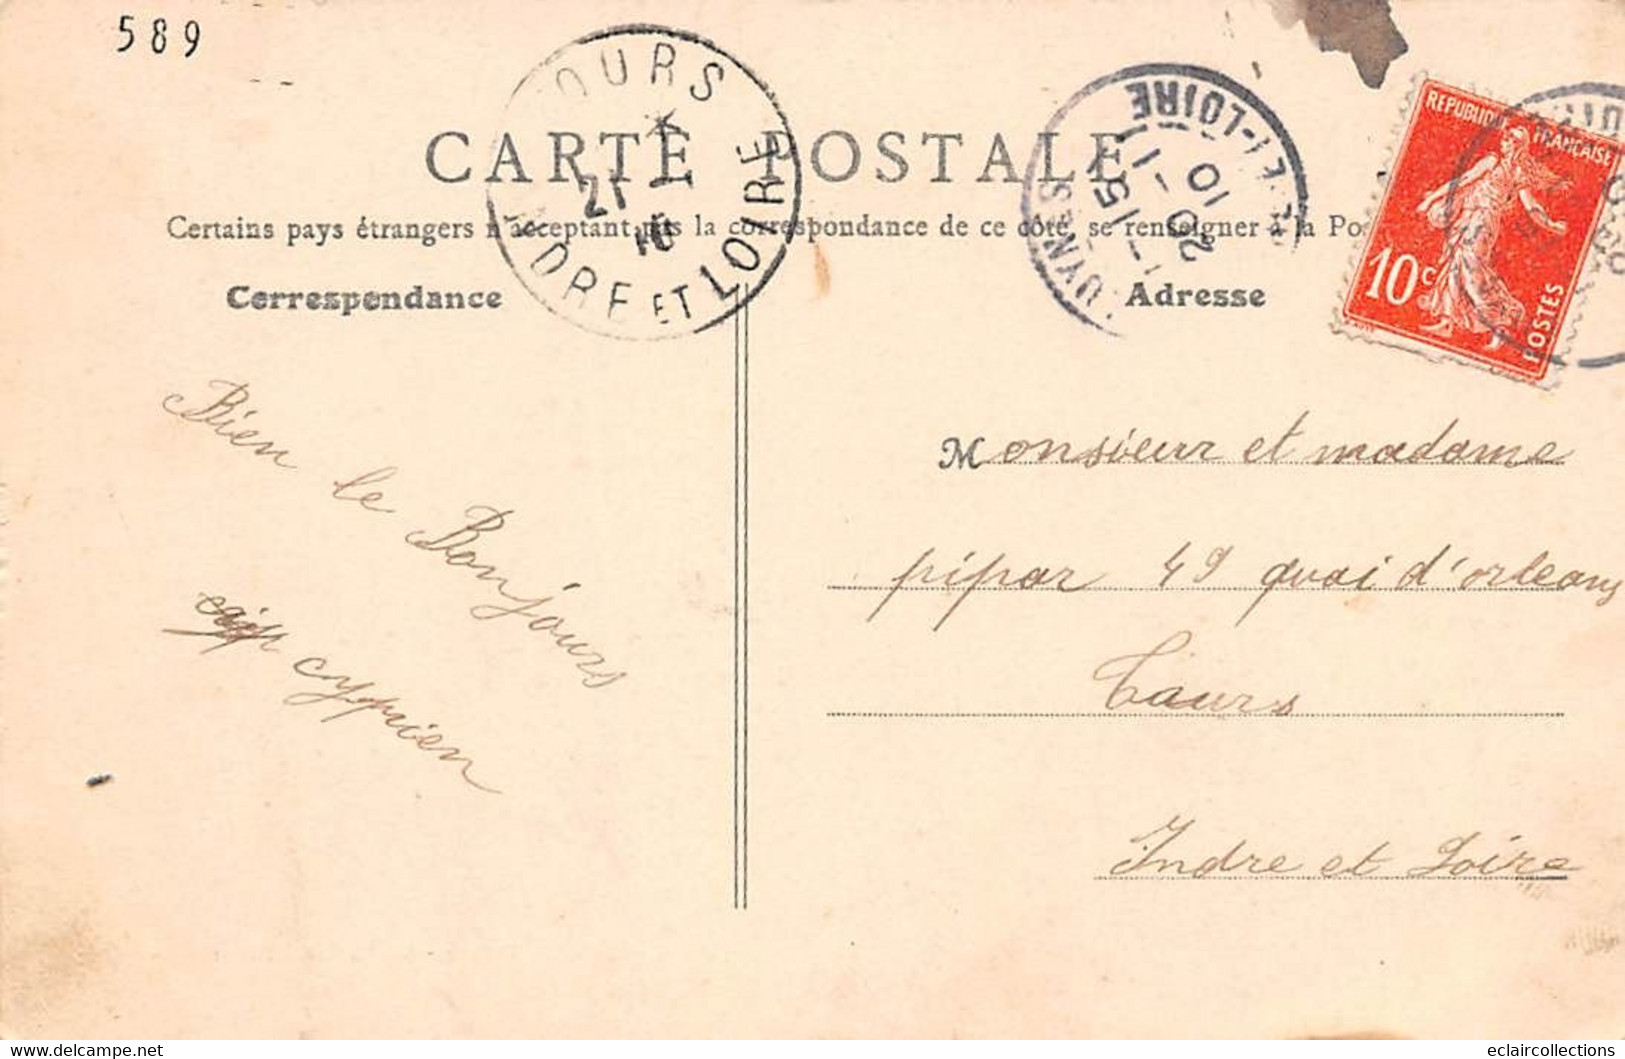 589
TOURS
21 - 1
10
INDRE ET LOIRE
LUYNES
15
20 - 1
10
ET-LOIRE
REPUBLIQUE FRANÇAISE
10c
POSTES
CARTE POSTALE
Certains pays étrangers n'acceptant pas la correspondance de ce côté, se renseigner à la Po
Correspondance
Adresse
Bien le Bonjours
cyprien
Monsieur et madame
pipar 49 quai d'orleans
Tours
Indre et Loire
eclaircollections
© www.delcampe.net